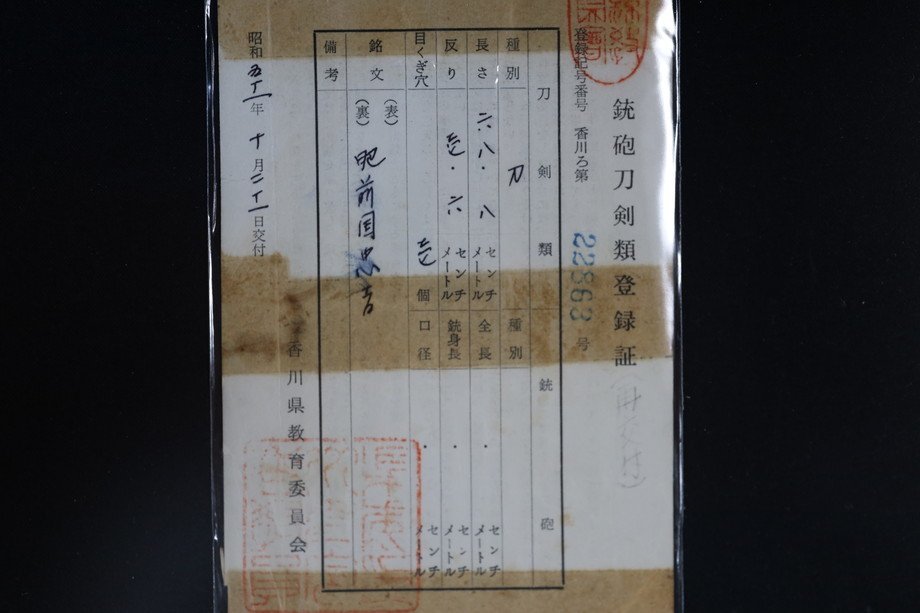 銃砲刀剣類登録証(再交付)
登録記号番号 香川ろ第 22863 号
刀剣類 銃砲
種別 刀 種別
長さ 六八・八 センチメートル 全長 ・ センチメートル
反り 壱・六 センチメートル 銃身長 ・ センチメートル
目くぎ穴 壱 個 口径 ・ センチメートル
銘文 (表)
(裏) 肥前国忠吉
備考
香川県教育委員会
昭和五十一年十月二十一日交付